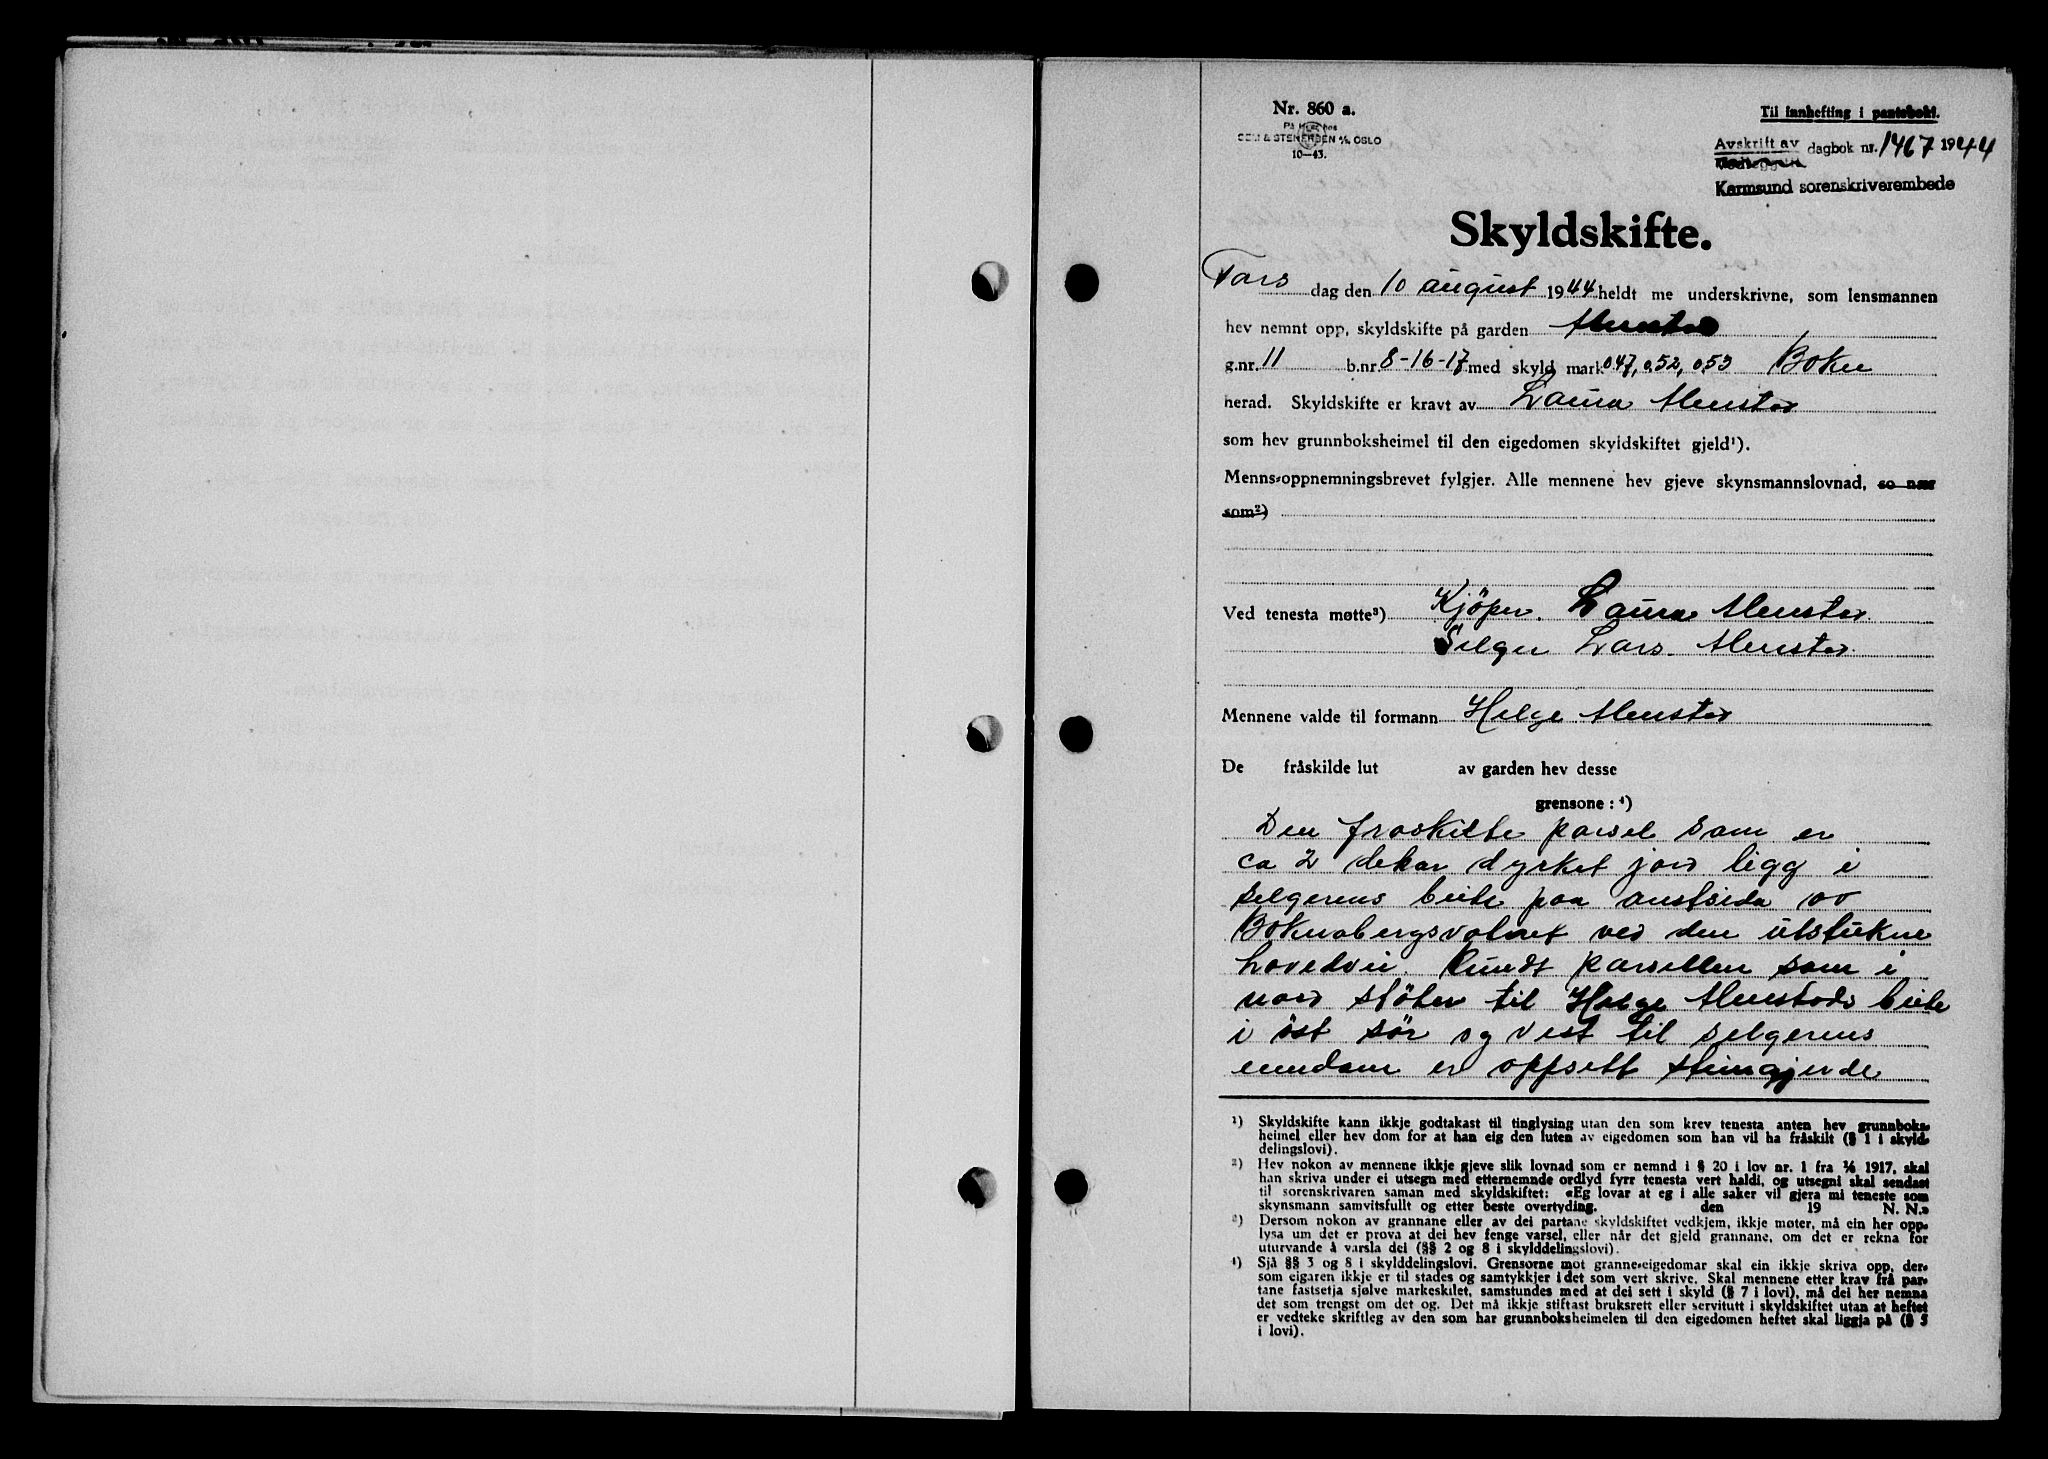 Nr. 860 a.
På lager hos
SEM & STENERSEN A/S, OSLO
10—43.
Til innhefting i pantebokt.
Avskrift av dagbok nr. 1467 1944
Karmsund sorenskriverembede
Skyldskifte.
Tors dag den 10 august 1944 heldt me underskrivne, som lensmannen
hev nemnt opp, skyldskifte på garden Alvestad
g.nr. 11 b.nr. 8-16-17 med skyld mark 0.47, 0.52, 0.53 Bokn
herad. Skyldskifte er kravt av Laura Alvestad
som hev grunnboksheimel til den eigedomen skyldskiftet gjeld¹).
Menns-oppnemningsbrevet fylgjer. Alle mennene hev gjeve skynsmannslovnad, so nær
som²)
Ved tenesta møtte³) Kjöper. Laura Alvestad.
Selger Lars. Alvestad.
Mennene valde til formann Helge Alvestad
De fråskilde lut av garden hev desse
grensone : ⁴)
Den fraskilte parsel som er
ca 2 dekar dyrket jord ligg i
selgerens beite paa austsida av
Boknabergsvatnet ved den utstukne
hovedvei. Rundt parsellen som i
nord stöter til Helge Alvestads beite
i öst sör og vest til selgerens
eiendom er oppsett steingjerde
¹) Skyldskifte kann ikkje godtakast til tinglysing utan den som krev tenesta anten hev grunnboks-
heimel eller hev dom for at han eig den luten av eigedomen som han vil ha fråskilt (§ 1 i skyld-
delingslovi).
²) Hev nokon av mennene ikkje gjeve slik lovnad som er nemnd i § 20 i lov nr. 1 fra ⅙ 1917, skal
han skriva under ei utsegn med etternemnde ordlyd fyrr tenesta vert haldi, og utsegni skal sendast
til sorenskrivaren saman med skyldskiftet: «Eg lovar at eg i alle saker vil gjera mi teneste som
skynsmann samvitsfullt og etter beste overtyding. den 19 N. N.»
³) Dersom nokon av grannane eller av dei partane skyldskiftet vedkjem, ikkje møter, må ein her opp-
lysa um det er prova at dei hev fenge varsel, eller når det gjeld grannane, om det er rekna for
uturvande å varsla dei (§§ 2 og 8 i skylddelingslovi).
⁴) Sjå §§ 3 og 8 i skylddelingslovi. Grensorne mot granne-eigedomar skal ein ikkje skriva opp, der-
som eigaren ikkje er til stades og samtykkjer i det som vert skrive. Skal mennene etter krav frå par-
tane fastsetja sjølve markeskilet, samstundes med at dei sett i skyld (§ 7 i lovi), må dei her nemna
det som trengst om det og. Det må ikkje stiftast bruksrett eller servitutt i skyldskiftet utan at heftet
er vedteke skriftleg av den som har grunnboksheimelen til den eigedomen heftet skal liggja på (§ 5
i lovi).